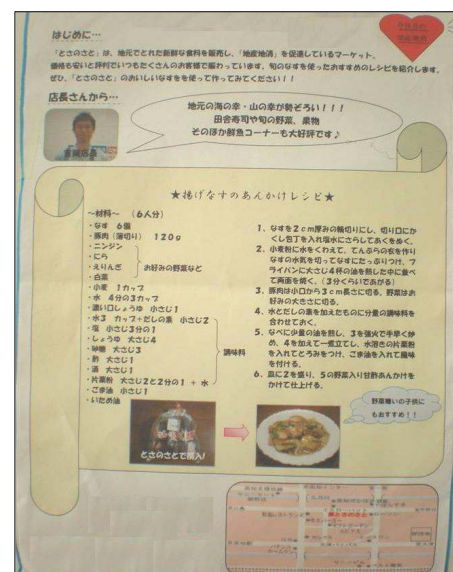 はじめに…
「とさのさと」は、地元でとれた新鮮な食料を販売し、「地産地消」を促進しているマーケット。
価格も安いと評判でいつもたくさんのお客様で賑わっています。旬のなすを使ったおすすめのレシピを紹介します。
ぜひ、「とさのさと」のおいしいなすをを使って作ってみてください！！
店長さんから…
地元の海の幸・山の幸が勢ぞろい！！！
田舎寿司や旬の野菜、果物
そのほか鮮魚コーナーも大好評です♪
★揚げなすのあんかけレシピ★
～材料～ （6人分）
・なす 6個
・豚肉（薄切り） 120g
・ニンジン
・にら
・えりんぎ
・白菜
お好みの野菜など
・小麦 1カップ
・水 4分の3カップ
・濃い口しょうゆ 小さじ1
・水3 カップ+だしの素 小さじ2
・塩 小さじ3分の1
・しょうゆ 大さじ4
・砂糖 大さじ3
・酢 大さじ1
・酒 大さじ1
・片栗粉 大さじ2と2分の1 + 水
・ごま油 小さじ1
・いため油
調味料
1、なすを2cm厚みの輪切りにし、切り口にか
くし包丁を入れ塩水にさらしてあくをぬく。
2、小麦粉に水をくわえて、てんぷらの衣を作り
なすの水気を切ってなすにたっぷりつけ、フ
ライパンに大さじ4杯の油を熱した中に並べ
て両面を焼く。（3分くらいであがる）
3、豚肉は小口から3cm長さに切る。野菜はお
好みの大きさに切る。
4、水とだしの素を加えたものに分量の調味料を
合わせておく。
5、なべに少量の油を熱し、3を強火で手早く炒
め、4を加えて一煮立てし、水溶きの片栗粉
を入れてとろみをつけ、ごま油を入れて風味
を付ける。
6、皿に2を盛り、5の野菜入り甘酢あんかけを
かけて仕上げる。
とさのさとで購入!
野菜嫌いの子供に
もおすすめ！！